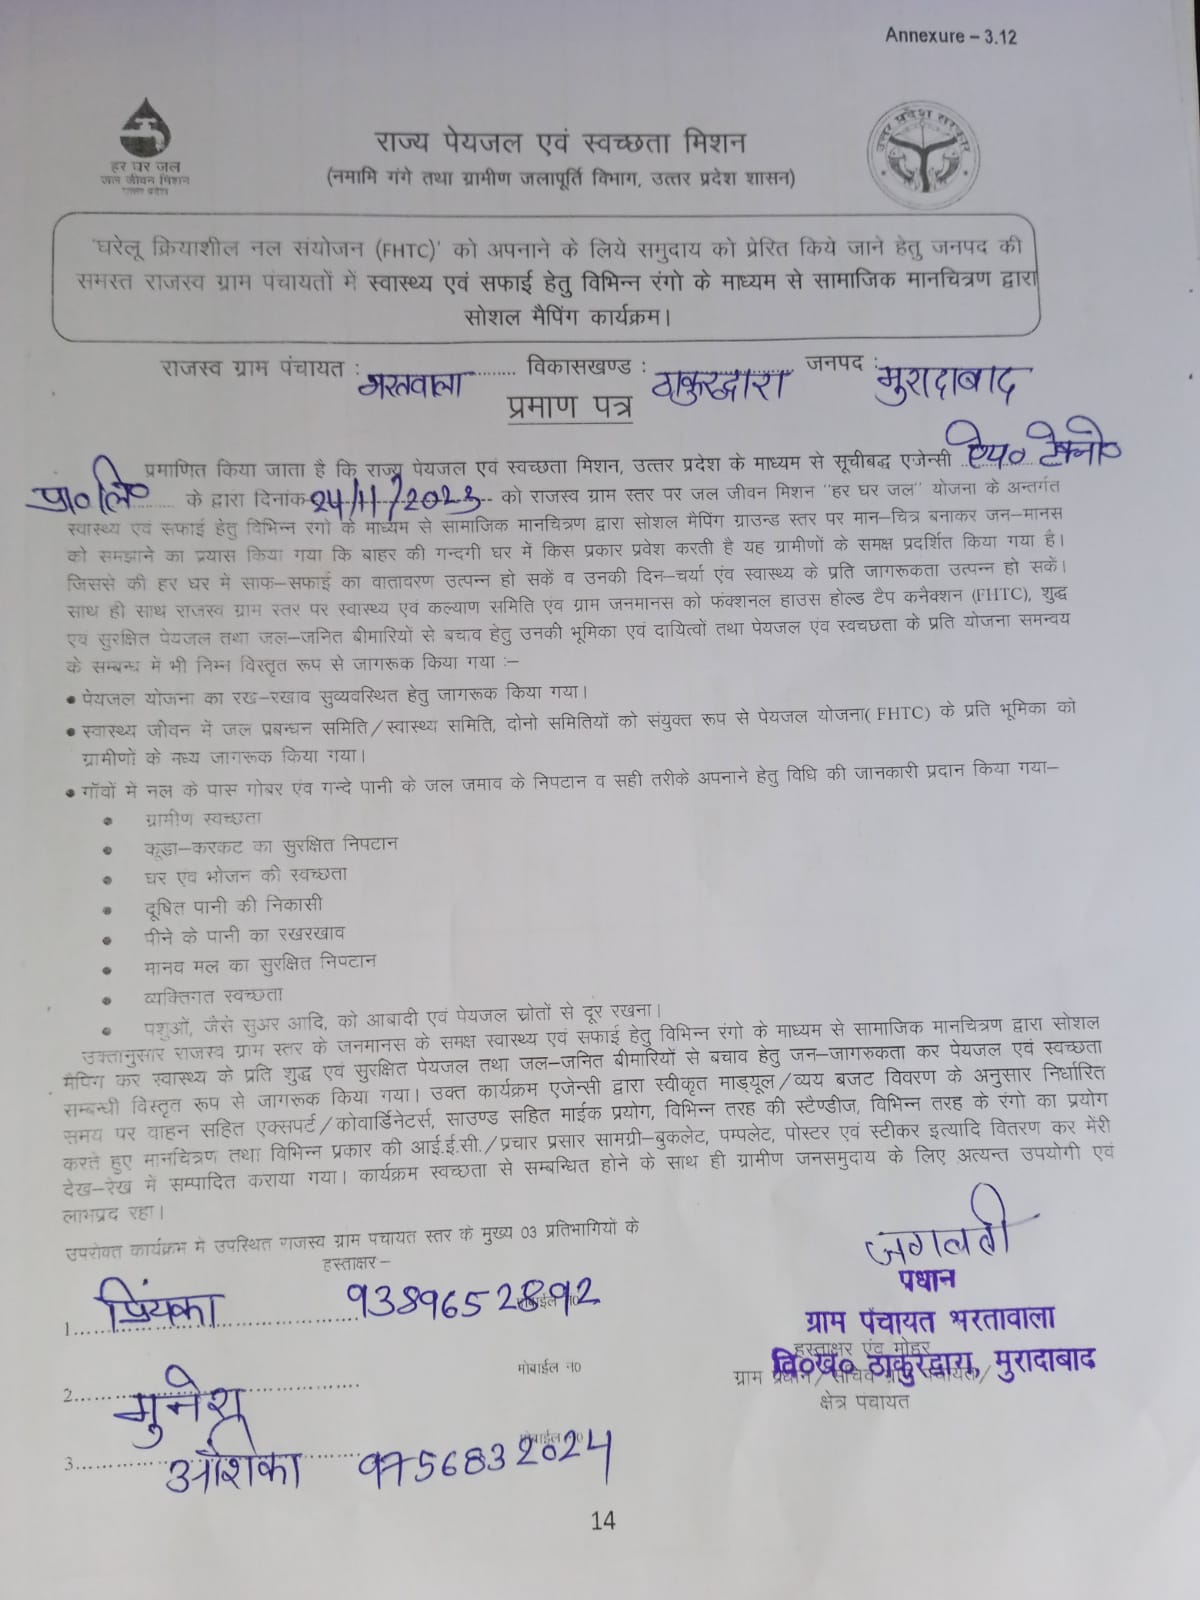 Annexure – 3.12
हर घर जल
जल जीवन मिशन
उत्तर प्रदेश
उत्तर प्रदेश सरकार
राज्य पेयजल एवं स्वच्छता मिशन
(नमामि गंगे तथा ग्रामीण जलापूर्ति विभाग, उत्तर प्रदेश शासन)
'घरेलू क्रियाशील नल संयोजन (FHTC)' को अपनाने के लिये समुदाय को प्रेरित किये जाने हेतु जनपद की
समस्त राजस्व ग्राम पंचायतों में स्वास्थ्य एवं सफाई हेतु विभिन्न रंगो के माध्यम से सामाजिक मानचित्रण द्वारा
सोशल मैपिंग कार्यक्रम।
राजस्व ग्राम पंचायत : भरतवाला ........ विकासखण्ड : ठाकुरद्वारा जनपद : मुरादाबाद
प्रमाण पत्र
प्रमाणित किया जाता है कि राज्य पेयजल एवं स्वच्छता मिशन, उत्तर प्रदेश के माध्यम से सूचीबद्ध एजेन्सी ऐय० टेक्नो०
प्रा० लि० के द्वारा दिनांक 24/11/2023 को राजस्व ग्राम स्तर पर जल जीवन मिशन "हर घर जल" योजना के अन्तर्गत
स्वास्थ्य एवं सफाई हेतु विभिन्न रंगो के माध्यम से सामाजिक मानचित्रण द्वारा सोशल मैपिंग ग्राउन्ड स्तर पर मान–चित्र बनाकर जन–मानस
को समझाने का प्रयास किया गया कि बाहर की गन्दगी घर में किस प्रकार प्रवेश करती है यह ग्रामीणों के समक्ष प्रदर्शित किया गया है।
जिससे की हर घर में साफ–सफाई का वातावरण उत्पन्न हो सकें व उनकी दिन–चर्या एंव स्वास्थ्य के प्रति जागरूकता उत्पन्न हो सकें।
साथ ही साथ राजस्व ग्राम स्तर पर स्वास्थ्य एवं कल्याण समिति एंव ग्राम जनमानस को फंक्शनल हाउस होल्ड टैप कनैक्शन (FHTC), शुद्ध
एवं सुरक्षित पेयजल तथा जल–जनित बीमारियों से बचाव हेतु उनकी भूमिका एवं दायित्वों तथा पेयजल एंव स्वचछता के प्रति योजना समन्वय
के सम्बन्ध में भी निम्न विस्तृत रूप से जागरूक किया गया :–
• पेयजल योजना का रख–रखाव सुव्यवस्थित हेतु जागरूक किया गया।
• स्वास्थ्य जीवन में जल प्रबन्धन समिति/स्वास्थ्य समिति, दोनो समितियों को संयुक्त रूप से पेयजल योजना( FHTC) के प्रति भूमिका को
ग्रामीणों के मध्य जागरूक किया गया।
• गॉवों में नल के पास गोबर एंव गन्दे पानी के जल जमाव के निपटान व सही तरीके अपनाने हेतु विधि की जानकारी प्रदान किया गया–
• ग्रामीण स्वच्छता
• कूडा–करकट का सुरक्षित निपटान
• घर एंव भोजन की स्वच्छता
• दूषित पानी की निकासी
• पीने के पानी का रखरखाव
• मानव मल का सुरक्षित निपटान
• व्यक्तिगत स्वच्छता
• पशुओं, जैसे सुअर आदि, को आबादी एवं पेयजल स्रोतों से दूर रखना।
उक्तानुसार राजस्व ग्राम स्तर के जनमानस के समक्ष स्वास्थ्य एवं सफाई हेतु विभिन्न रंगो के माध्यम से सामाजिक मानचित्रण द्वारा सोशल
मैपिंग कर स्वास्थ्य के प्रति शुद्ध एवं सुरक्षित पेयजल तथा जल–जनित बीमारियों से बचाव हेतु जन–जागरुकता कर पेयजल एवं स्वच्छता
सम्बन्धी विस्तृत रूप से जागरूक किया गया। उक्त कार्यक्रम एजेन्सी द्वारा स्वीकृत माड्यूल/व्यय बजट विवरण के अनुसार निर्धारित
समय पर वाहन सहित एक्सपर्ट/कोवार्डिनेटर्स, साउण्ड सहित माईक प्रयोग, विभिन्न तरह की स्टैण्डीज, विभिन्न तरह के रंगो का प्रयोग
करते हुए मानचित्रण तथा विभिन्न प्रकार की आई.ई.सी./प्रचार प्रसार सामग्री–बुकलेट, पम्पलेट, पोस्टर एवं स्टीकर इत्यादि वितरण कर मेंरी
देख–रेख में सम्पादित कराया गया। कार्यक्रम स्वच्छता से सम्बन्धित होने के साथ ही ग्रामीण जनसमुदाय के लिए अत्यन्त उपयोगी एवं
लाभप्रद रहा।
उपरोक्त कार्यक्रम मे उपस्थित राजस्व ग्राम पंचायत स्तर के मुख्य 03 प्रतिभागियों के
हस्ताक्षर–
जगलवती
प्रधान
ग्राम पंचायत भरतावाला
वि०ख० ठाकुरद्वारा, मुरादाबाद
हस्ताक्षर एंव मोहर
ग्राम प्रधान/सचिव ग्राम पंचायत/
क्षेत्र पंचायत
1. प्रियंका मोबाईल न0 9389652892
2. मुनेश मोबाईल न0
3. अंशिका मोबाईल न0 9756832024
14